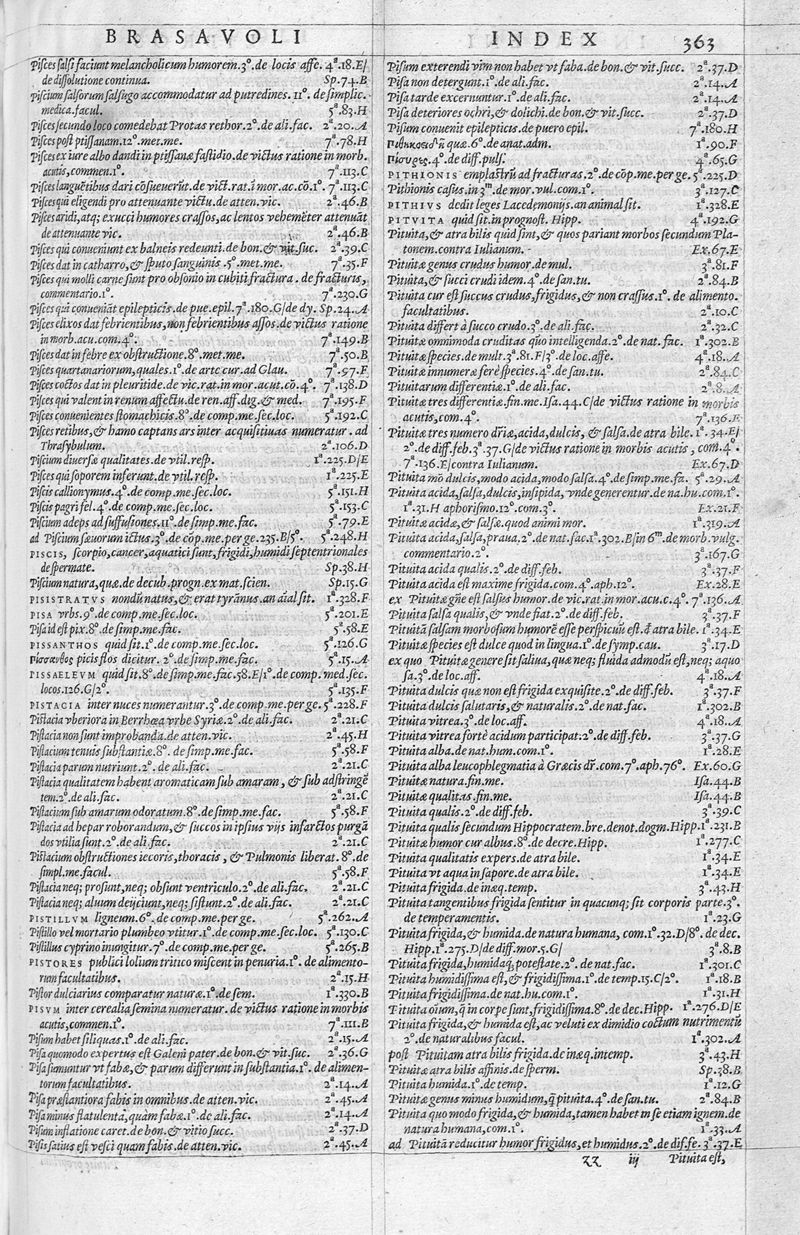 BRASAVOLI
Pisces salsi faciunt melancholicum humorem.3º.de locis affe. 4ª.18.E/
de dissolutione continua. Sp.74.B
Piscium salsorum salsugo accommodatur ad putredines. 11º. de simplic.
medica.facul. 5ª.83.H
Pisces secundo loco comedebat Protas rethor.2º.de ali.fac. 2ª.20.A
Pisces post ptissanam.12º.met.me. 7ª.78.H
Pisces ex iure albo dandi in ptissanæ fastidio.de victus ratione in morb.
acutis,commen.1º. 7ª.113.C
Pisces languẽtibus dari cõsueuerũt.de vict.rat.ĩ mor.ac.cõ.1º. 7ª.113.C
Pisces qui eligendi pro attenuante victu.de atten.vic. 2ª.46.B
Pisces aridi,atq; exucci humores crassos,ac lentos vehemẽter attenuãt
de attenuante vic. 2ª.46.B
Pisces qui conueniunt ex balneis redeunti.de bon.& vit.suc. 2ª.39.C
Pisces dat in catharro,& sputo sanguinis .5º.met.me. 7ª.35.F
Pisces qui molli carne sunt pro obsonio in cubiti fractura . de fracturis,
commentario.1º. 7ª.230.G
Pisces qui conueniãt epilepticis.de pue.epil.7ª.180.G/de dy. Sp.24.A
Pisces elixos dat febrientibus,non febrientibus assos.de victus ratione
in morb.acu.com.4º. 7ª.149.B
Pisces dat in febre ex obstructione.8º.met.me. 7ª.50.B
Pisces quartanariorum,quales.1º.de arte cur.ad Glau. 7ª.97.F
Pisces coctos dat in pleuritide.de vic.rat in mor.acut.cõ.4º. 7ª.138.D
Pisces qui valent in renum affectu.de ren.aff.dig.& med. 7ª.195.F
Pisces conuenientes stomachicis.8º.de comp.me.sec.loc. 5ª.192.C
Pisces retibus,& hamo captans ars inter acquisitiuas numeratur . ad
Thrasybulum. 2ª.106.D
Piscium diuersæ qualitates.de vtil.resp. 1ª.225.D/E
Pisces qui soporem inferunt.de vtil.resp. 1ª.225.E
Piscis callionymus.4º.de comp.me.sec.loc. 5ª.151.H
Piscis pagri fel.4º.de comp.me.sec.loc. 5ª.153.C
Piscium adeps ad suffusiones.11º.de simp.me.fac. 5ª.79.E
ad Piscium sæuorum ictus.3º.de cõp.me.per ge.235.B/5º. 5ª.248.H
PISCIS, scorpio,cancer,aquatici sunt,frigidi,humidi septentrionales
de spermate. Sp.38.H
Piscium natura,quæ.de decub.progn.ex mat.scien. Sp.15.G
PISISTRATVS nondũ natus,& erat tyrãnus.an aĩal sit. 1ª.328.F
PISA vrbs.9º.de comp.me.sec.loc. 5ª.201.E
Pisa id est pix.8º.de simp.me.fac. 5ª.58.E
PISSANTHOS quid sit.1º.de comp.me.sec.loc. 5ª.126.G
Πίσσανθος picis flos dicitur. 2º.de simp.me.fac. 5ª.15.A
PISSAELEVM quid sit.8º.de simp.me.fac.58.E/1º.de comp.med.sec.
locos.126.G/2º. 5ª.135.F
PISTACIA inter nuces numerantur.3º.de comp.me.per ge. 5ª.228.F
Pistacia vberiora in Berrhœa vrbe Syriæ.2º.de ali.fac. 2ª.21.C
Pistacia non sunt improbanda.de atten.vic. 2ª.45.H
Pistacium tenuis substantiæ.8º. de simp.me.fac. 5ª.58.F
Pistacia parum nutriunt.2º. de ali.fac. 2ª.21.C
Pistacia qualitatem habent aromaticam sub amaram , & sub adstringẽ
tem.2º.de ali.fac. 2ª.21.C
Pistacium sub amarum odoratum.8º.de simp.me.fac. 5ª.58.F
Pistacia ad hepar roborandum,& succos in ipsius vijs infarctos purgã
dos vtilia sunt.2º.de ali.fac. 2ª.21.C
Pistacium obstructiones iecoris,thoracis , & Pulmonis liberat. 8º.de
simpl.me.facul. 5ª.58.F
Pistacia neq; prosunt,neq; obsunt ventriculo.2º.de ali.fac. 2ª.21.C
Pistacia neq; aluum deijciunt,neq; sistunt.2º.de ali.fac. 2ª.21.C
PISTILLVM ligneum.6º.de comp.me.per ge. 5ª.262.A
Pistillo vel mortario plumbeo vtitur.1º.de comp.me.sec.loc. 5ª.130.C
Pistillus cyprino inungitur.7º.de comp.me.per ge. 5ª.265.B
PISTORES publici lolium tritico miscent in penuria.1º. de alimento-
rum facultatibus. 2ª.15.H
Pistor dulciarius comparatur naturæ.1º.de sem. 1ª.330.B
PISVM inter cerealia semina numeratur. de victus ratione in morbis
acutis,commen.1º. 7ª.111.B
Pisum habet siliquas.1º.de ali.fac. 2ª.15.A
Pisa quomodo expertus est Galeni pater.de bon.& vit.suc. 2ª.36.G
Pisa sumuntur vt fabæ,& parum differunt in substantia.1º. de alimen-
torum facultatibus. 2ª.14.A
Pisa præstantiora fabis in omnibus.de atten.vic. 2ª.45.A
Pisa minus flatulenta,quàm fabæ.1º.de ali.fac. 2ª.14.A
Pisum inflatione caret.de bon.& vitio succ. 2ª.37.D
Pisis satius est vesci quam fabis.de atten.vic. 2ª.45.A
INDEX 363
Pisum exterendi vim non habet vt faba.de bon.& vit.succ. 2ª.37.D
Pisa non detergunt.1º.de ali.fac. 2ª.14.A
Pisa tarde excernuntur.1º.de ali.fac. 2ª.14.A
Pisa deteriores ochri,& dolichi.de bon.& vit.succ. 2ª.37.D
Pisum conuenit epilepticis.de puero epil. 7ª.180.H
quæ.6º.de anat.adm. 1ª.90.F
4º.de diff.puls. 4ª.65.G
PITHIONIS emplastrũ ad fracturas.2º.de cõp.me.per ge. 5ª.225.D
Pithionis casus.in 3ᵐ.de mor.vul.com.1º. 3ª.127.C
PITHIVS dedit leges Lacedemonijs.an animal sit. 1ª.328.E
PITVITA quid sit.in prognost. Hipp. 4ª.192.G
Pituita,& atra bilis quid sint,& quos pariant morbos secundum Pla-
tonem.contra Iulianum. Ex.67.E
Pituitæ genus crudus humor.de mul. 3ª.81.F
Pituita,& succi crudi idem.4º.de san.tu. 2ª.84.B
Pituita cur est succus crudus,frigidus,& non crassus.1º. de alimento.
facultatibus. 2ª.10.C
Pituita differt à succo crudo.3º.de ali.fac. 2ª.32.C
Pituitæ omnimoda cruditas quõ intelligenda.2º.de nat.fac. 1ª.302.B
Pituitæ species.de mult.3ª.81.F/3º.de loc.affe. 4ª.18.A
Pituitæ innumeræ ferè species.4º.de san.tu. 2ª.84.C
Pituitarum differentiæ.1º.de ali.fac. 2ª.8.A
Pituitæ tres differentiæ.fin.me.Isa.44.C/de victus ratione in morbis
acutis,com.4º. 7ª.136.E
Pituitæ tres numero dr̃iæ,acida,dulcis, & salsa.de atra bile. 1ª.34.E/
2º.de diff.feb.3ª.37.G/de victus ratione in morbis acutis , com.4º.
7ª.136.E/contra Iulianum. Ex.67.D
Pituita mõ dulcis,modo acida,modo salsa.4º.de simp.me.fa. 5ª.29.A
Pituita acida,salsa,dulcis,insipida, vnde generentur.de na.hu.com.1º.
1ª.31.H aphorismo.12º.com.3º. Ex.21.F
Pituitæ acidæ,& salsæ.quod animi mor. 1ª.319.A
Pituita acida,salsa,praua.2º.de nat.fac.1ª.302.B/in 6ᵐ.de morb.vulg.
commentario.2º. 3ª.167.G
Pituita acida qualis.2º.de diff.feb. 3ª.37.F
Pituita acida est maxime frigida.com.4º.aph.12º. Ex.28.E
ex Pituitæ gñe est salsus humor.de vic.rat.in mor.acu.c.4º. 7ª.136.A
Pituita salsa qualis,& vnde fiat.2º.de diff.feb. 3ª.37.F
Pituitã salsam morbosum humorẽ esse perspicuũ est.ĩ atra bile. 1ª.34.E
Pituitæ species est dulce quod in lingua.1º.de symp.cau. 3ª.17.D
ex quo Pituitæ genere sit saliua,quæ neq; fluida admodũ est,neq; aquo
sa.3º.de loc.aff. 4ª.18.A
Pituita dulcis quæ non est frigida exquisite.2º.de diff.feb. 3ª.37.F
Pituita dulcis salutaris,& naturalis.2º.de nat.fac. 1ª.302.B
Pituita vitrea.3º.de loc.aff. 4ª.18.A
Pituita vitrea fortè acidum participat.2º.de diff.feb. 3ª.37.G
Pituita alba.de nat.hum.com.1º. 1ª.28.E
Pituita alba leucophlegmatia à Græcis dr̃.com.7º.aph.76º. Ex.60.G
Pituitæ natura.fin.me. Isa.44.B
Pituitæ qualitas.fin.me. Isa.44.B
Pituita qualis.2º.de diff.feb. 3ª.39.C
Pituita qualis secundum Hippocratem.bre.denot.dogm.Hipp. 1ª.231.B
Pituitæ humor cur albus.8º.de decre.Hipp. 1ª.277.C
Pituita qualitatis expers.de atra bile. 1ª.34.E
Pituita vt aqua in sapore.de atra bile. 1ª.34.E
Pituita frigida.de inæq.temp. 3ª.43.H
Pituita tangentibus frigida sentitur in quacunq; sit corporis parte.3º.
de temperamentis. 1ª.23.G
Pituita frigida,& humida.de natura humana, com.1º.32.D/8º. de dec.
Hipp.1ª.275.D/de diff.mor.5.G/ 3ª.8.B
Pituita frigida,humidaq̃,potestate.2º. de nat.fac. 1ª.301.C
Pituita humidissima est,& frigidissima.1º.de temp.15.C/2º. 1ª.18.B
Pituita frigidissima.de nat.hu.com.1º. 1ª.31.H
Pituita oĩum,q̃ in corpe sunt,frigidissima.8º.de dec.Hipp. 1ª.276.D/E
Pituita frigida,& humida est,ac veluti ex dimidio coctum nutrimentũ
2º.de naturalibus facul. 1ª.302.A
post Pituitam atra bilis frigida.de inæq.intemp. 3ª.43.H
Pituitæ atra bilis affinis.de sperm. Sp.38.B
Pituita humida.1º.de temp. 1ª.12.G
Pituitæ genus minus humidum,q̃ pituita.4º.de san.tu. 2ª.84.B
Pituita quo modo frigida,& humida,tamen habet in se etiam ignem.de
natura humana,com.1º. 1ª.33.A
ad Pituitã reducitur humor frigidus,et humidus.2º.de dif.fe. 3ª.37.E
ZZ iij Pituita est,